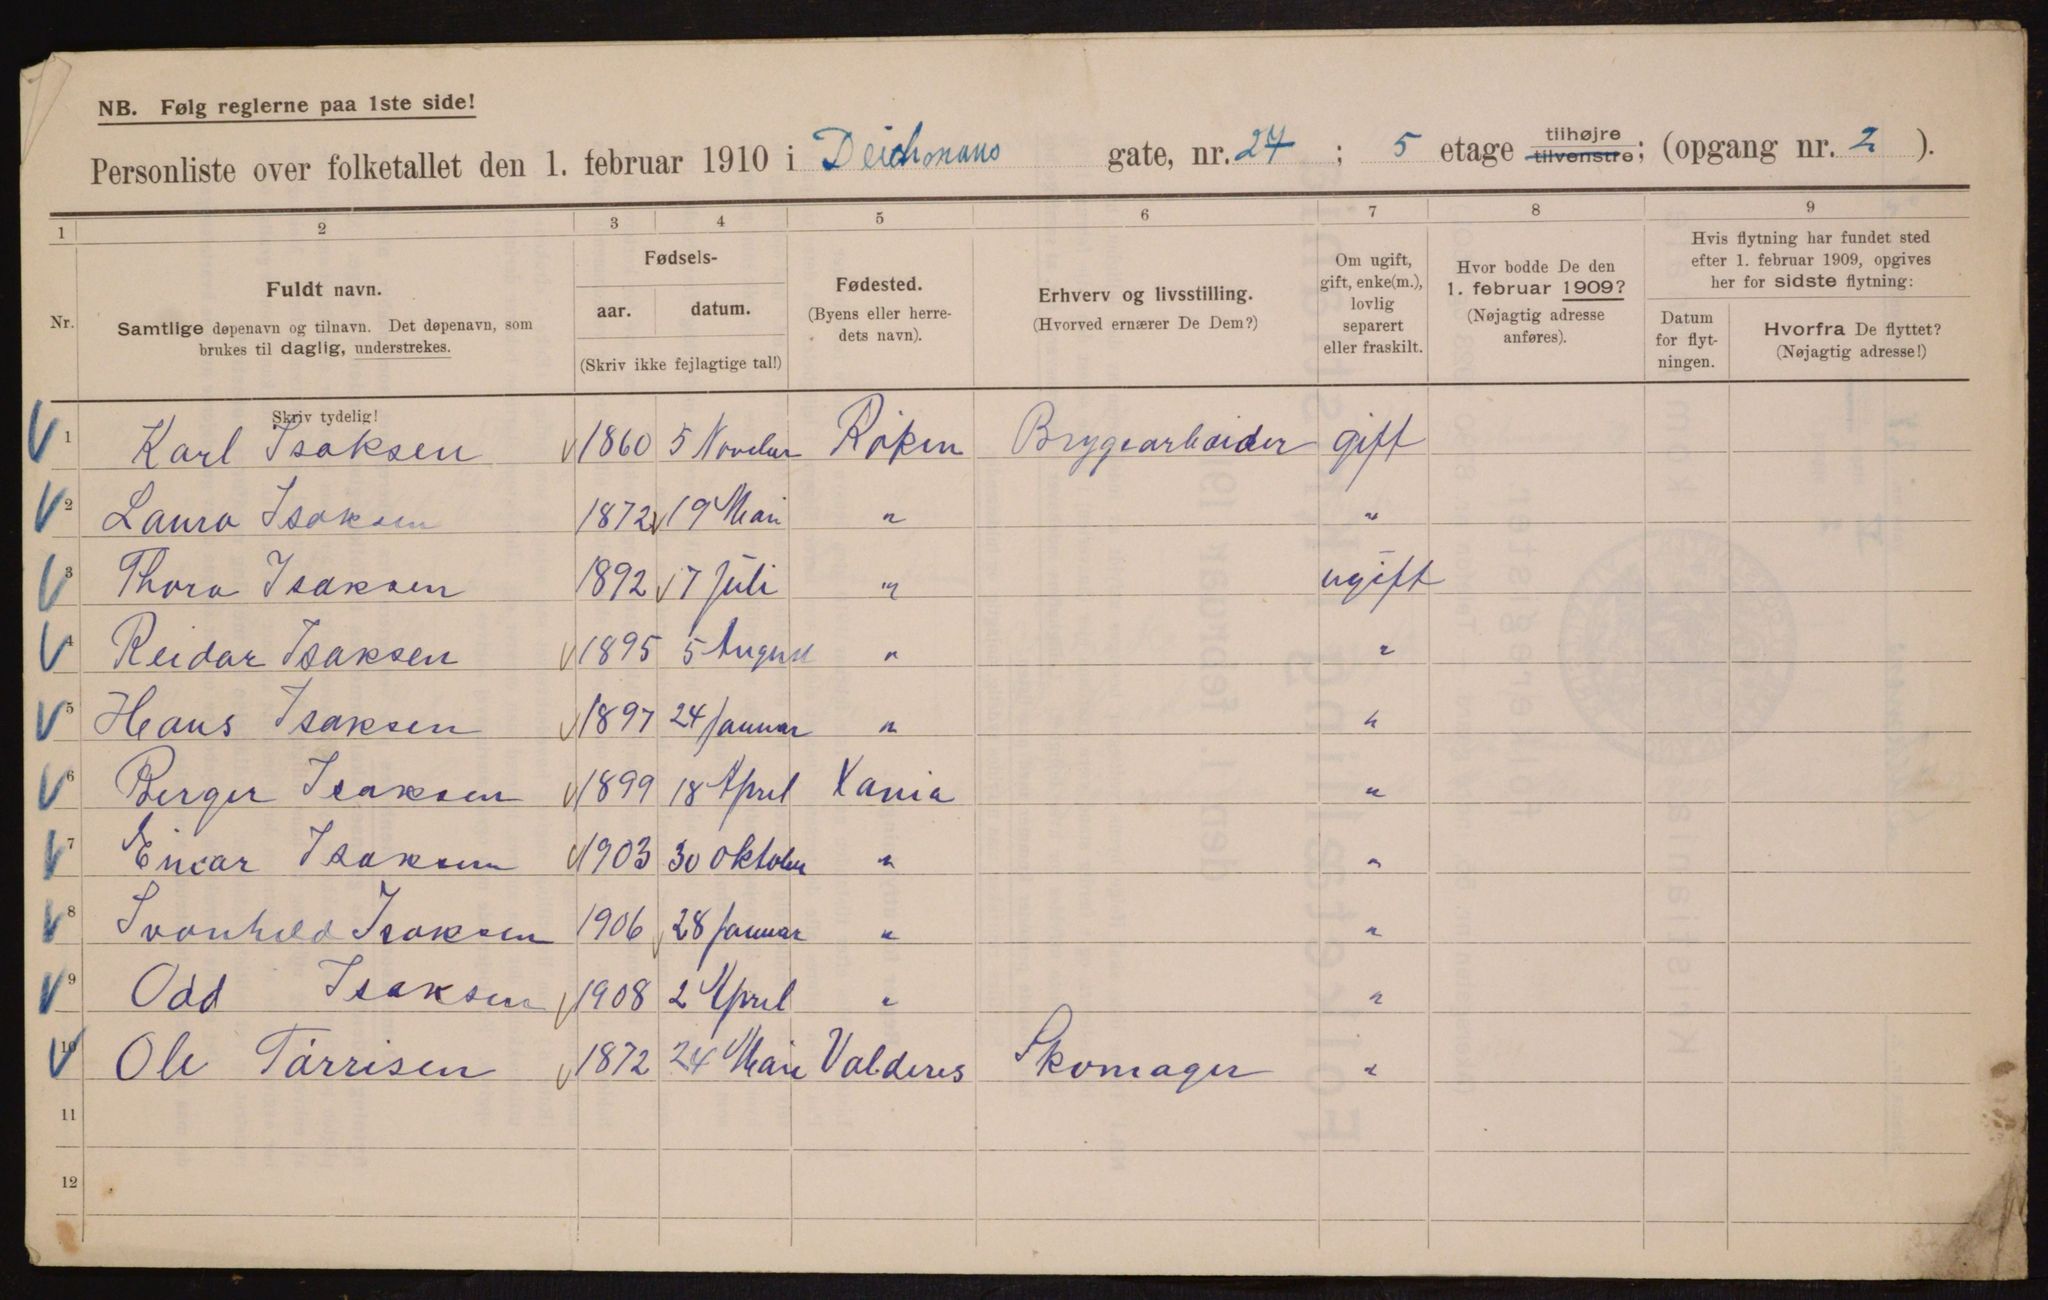 NB. Følg reglerne paa 1ste side!
Personliste over folketallet den 1. februar 1910 i Deichmans gate, nr. 27 ; 5 etage tilhøjre tilvenstre; (opgang nr. 2 ).
1 2 3 4 5 6 7 8 9
Nr.
Fuldt navn.
Samtlige døpenavn og tilnavn. Det døpenavn, som
brukes til daglig, understrekes.
Fødsels-
aar. datum.
(Skriv ikke fejlagtige tal!)
Fødested.
(Byens eller herre-
dets navn).
Erhverv og livsstilling.
(Hvorved ernærer De Dem?)
Om ugift,
gift, enke(m.),
lovlig
separert
eller fraskilt.
Hvor bodde De den
1. februar 1909?
(Nøjagtig adresse
anføres).
Hvis flytning har fundet sted
efter 1. februar 1909, opgives
her for sidste flytning:
Datum
for flyt-
ningen.
Hvorfra De flyttet?
(Nøjagtig adresse!)
Skriv tydelig!
1 Karl Isaksen 1860 5 November Røken Brygearbeider gift
2 Laura Isaksen 1872 19 Mai " "
3 Thora Isaksen 1892 17 Juli " ugift
4 Reidar Isaksen 1895 5 August " "
5 Hans Isaksen 1897 24 Januar " "
6 Berger Isaksen 1899 18 April Xania "
7 Einar Isaksen 1903 30 oktober " "
8 Svanhild Isaksen 1906 28 Januar " "
9 Odd Isaksen 1908 2 April " "
10 Ole Tørrisen 1872 24 Mai Valderes Skomager "
11
12